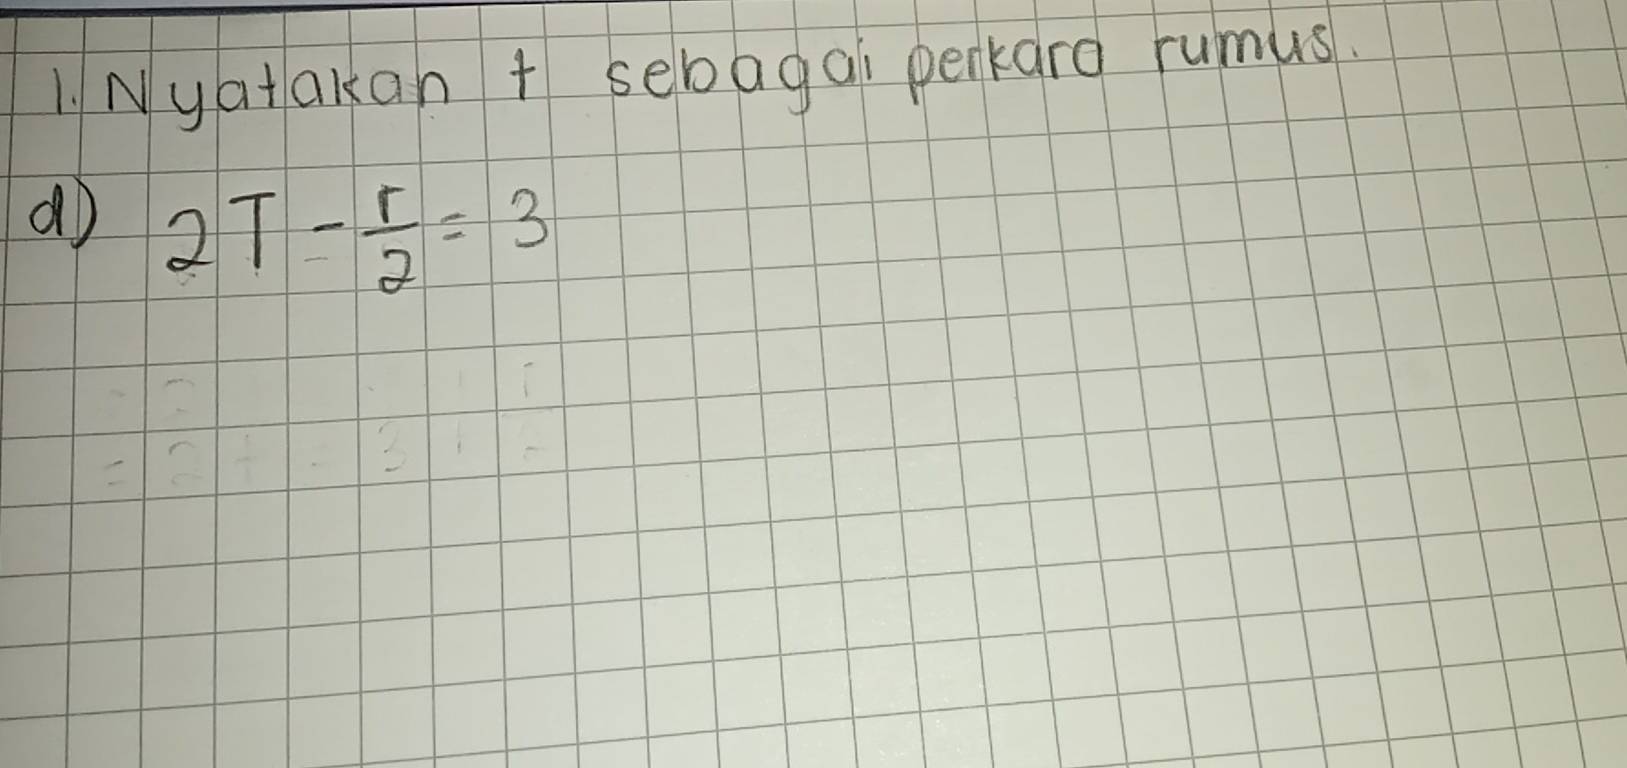 1. Nyatakan t sebagai perkara rumus.
d) 2T - r/2 = 3
= 2t = 3 +